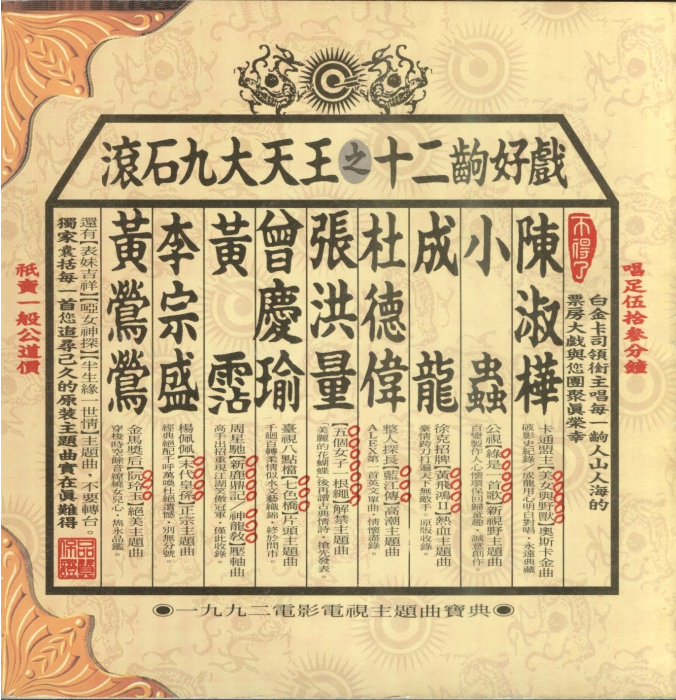 滾石九大天王之十二齣好戲
唱足伍拾參分鐘
不得了
白金卡司領銜主唱每一齣人山人海的
票房大戲與您團聚眞榮幸
陳淑樺
卡通盟主【美女與野獸】奧斯卡金曲
破影史紀錄，成龍用心明日對唱，永遠典藏
小蟲
公視【綠是一首歌】新視野主題曲
百變製作人心懷環保歸童趣，誠意創作。
成龍
徐克招牌【黃飛鴻II】熱血主題曲
豪情跨刀打遍天下無敵手，原版收錄。
杜德偉
整人探長【藍江傳】高潮主題曲
ALEX第一首英文單曲，情懷盡錄。
張洪量
【五個女子一根繩】解禁主題曲
美麗的花蝴蝶之後再譜古典情詩，搶先發表。
曾慶瑜
臺視八點檔【七色橋】片頭主題曲
千廻百轉柔情似水文藝織錦，終於問市。
黃霑
周星馳【新鹿鼎記／神龍教】壓軸曲
高手出招重現江湖笑傲冠軍，僅此收錄。
李宗盛
楊佩佩【末代皇孫】正宗主題曲
經典絕配千呼萬喚杜絕遺憾，別無分號。
黃鶯鶯
金馬獎后【阮玲玉】絕美主題曲
穿梭時空餘音繚繞女兒心，雋永品鑑。
還有【表妹吉祥】【啞女神探】【半生緣一世情】主題曲，不要轉台。
獨家囊括每一首您追尋已久的原裝主題曲實在眞難得
品質保證
祇賣一般公道價
一九九二電影電視主題曲寶典